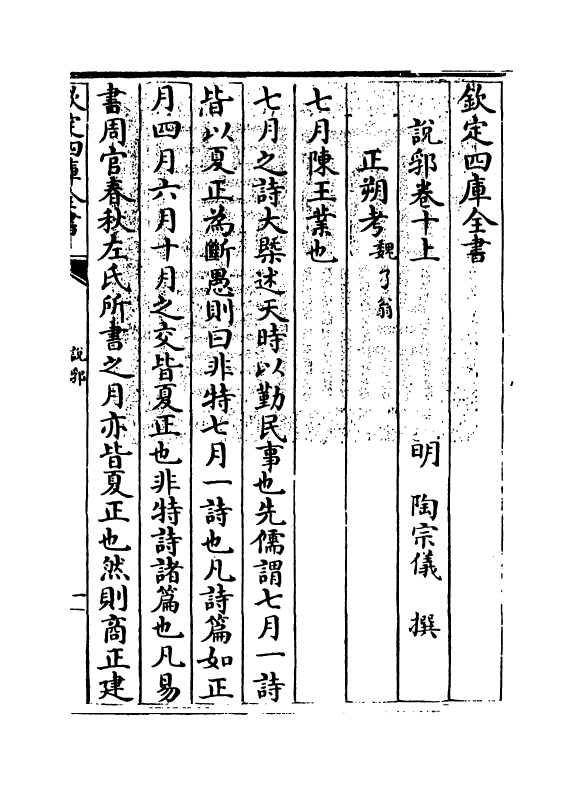 欽定四庫全書
說郛卷十上　　明　陶宗儀　撰
正朔考魏了翁
七月陳王業也
七月之詩大槩述天時以勤民事也先儒謂七月一詩
皆以夏正為斷愚則曰非特七月一詩也凡詩篇如正
月四月六月十月之交皆夏正也非特詩諸篇也凡易
書周官春秋左氏所書之月亦皆夏正也然則商正建
欽定四庫全書
說郛
一